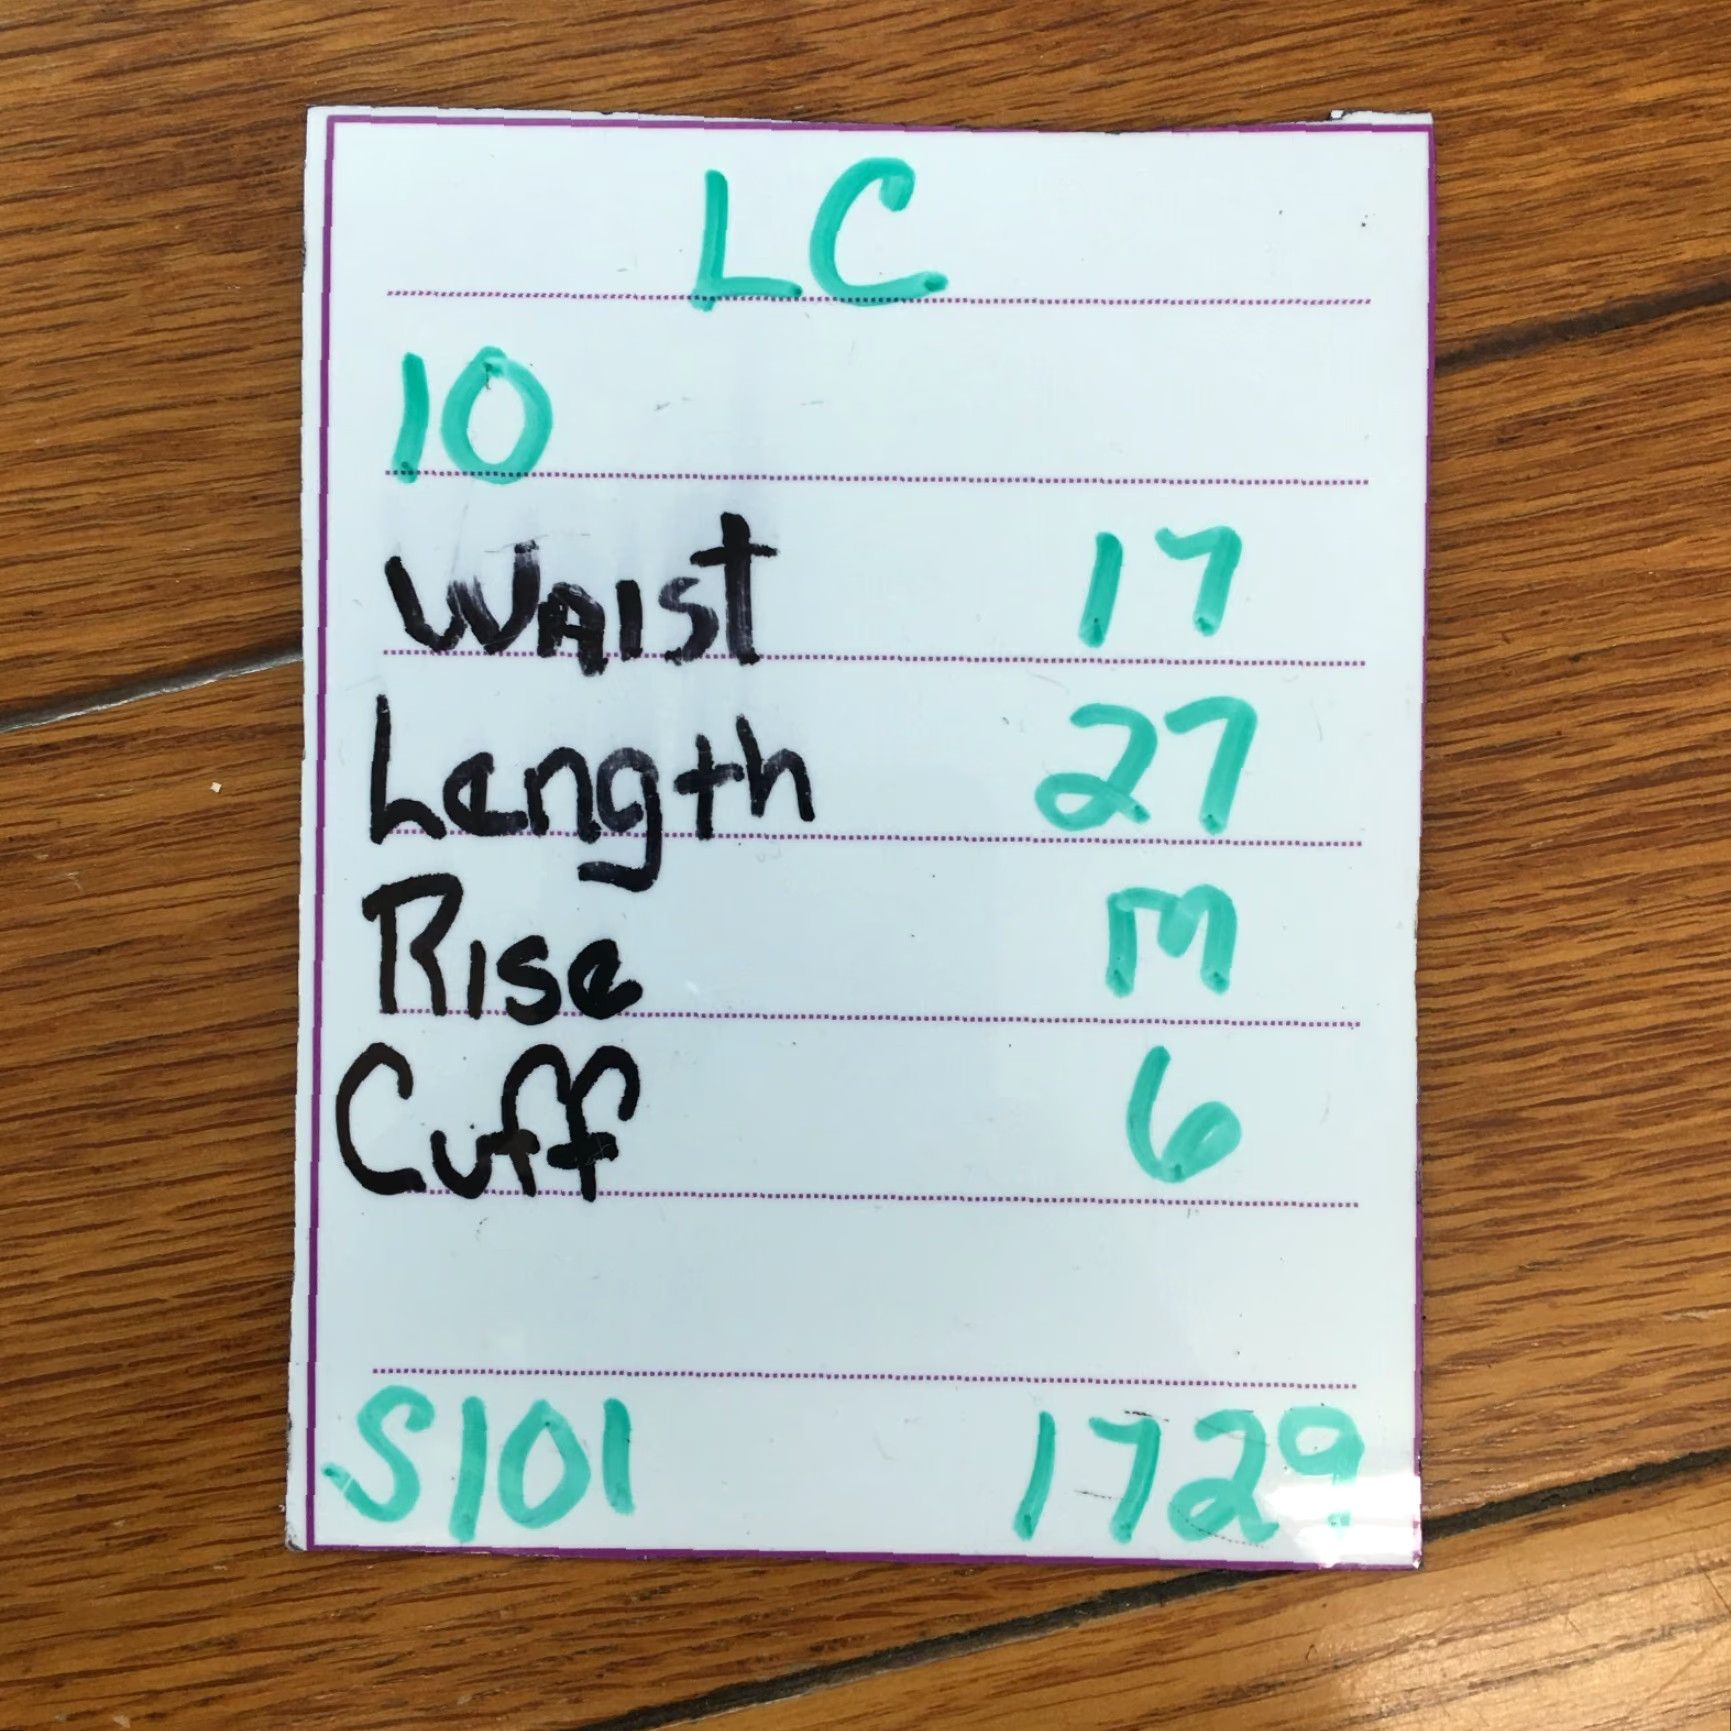 LC
10
Waist 17
Length 27
Rise M
Cuff 6
S101 1729